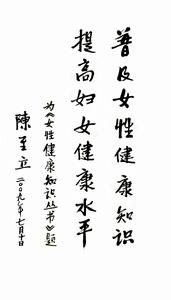 普及女性健康知识
提高妇女健康水平
为《女性健康知识丛书》题
陈至立
二〇〇九年七月十日